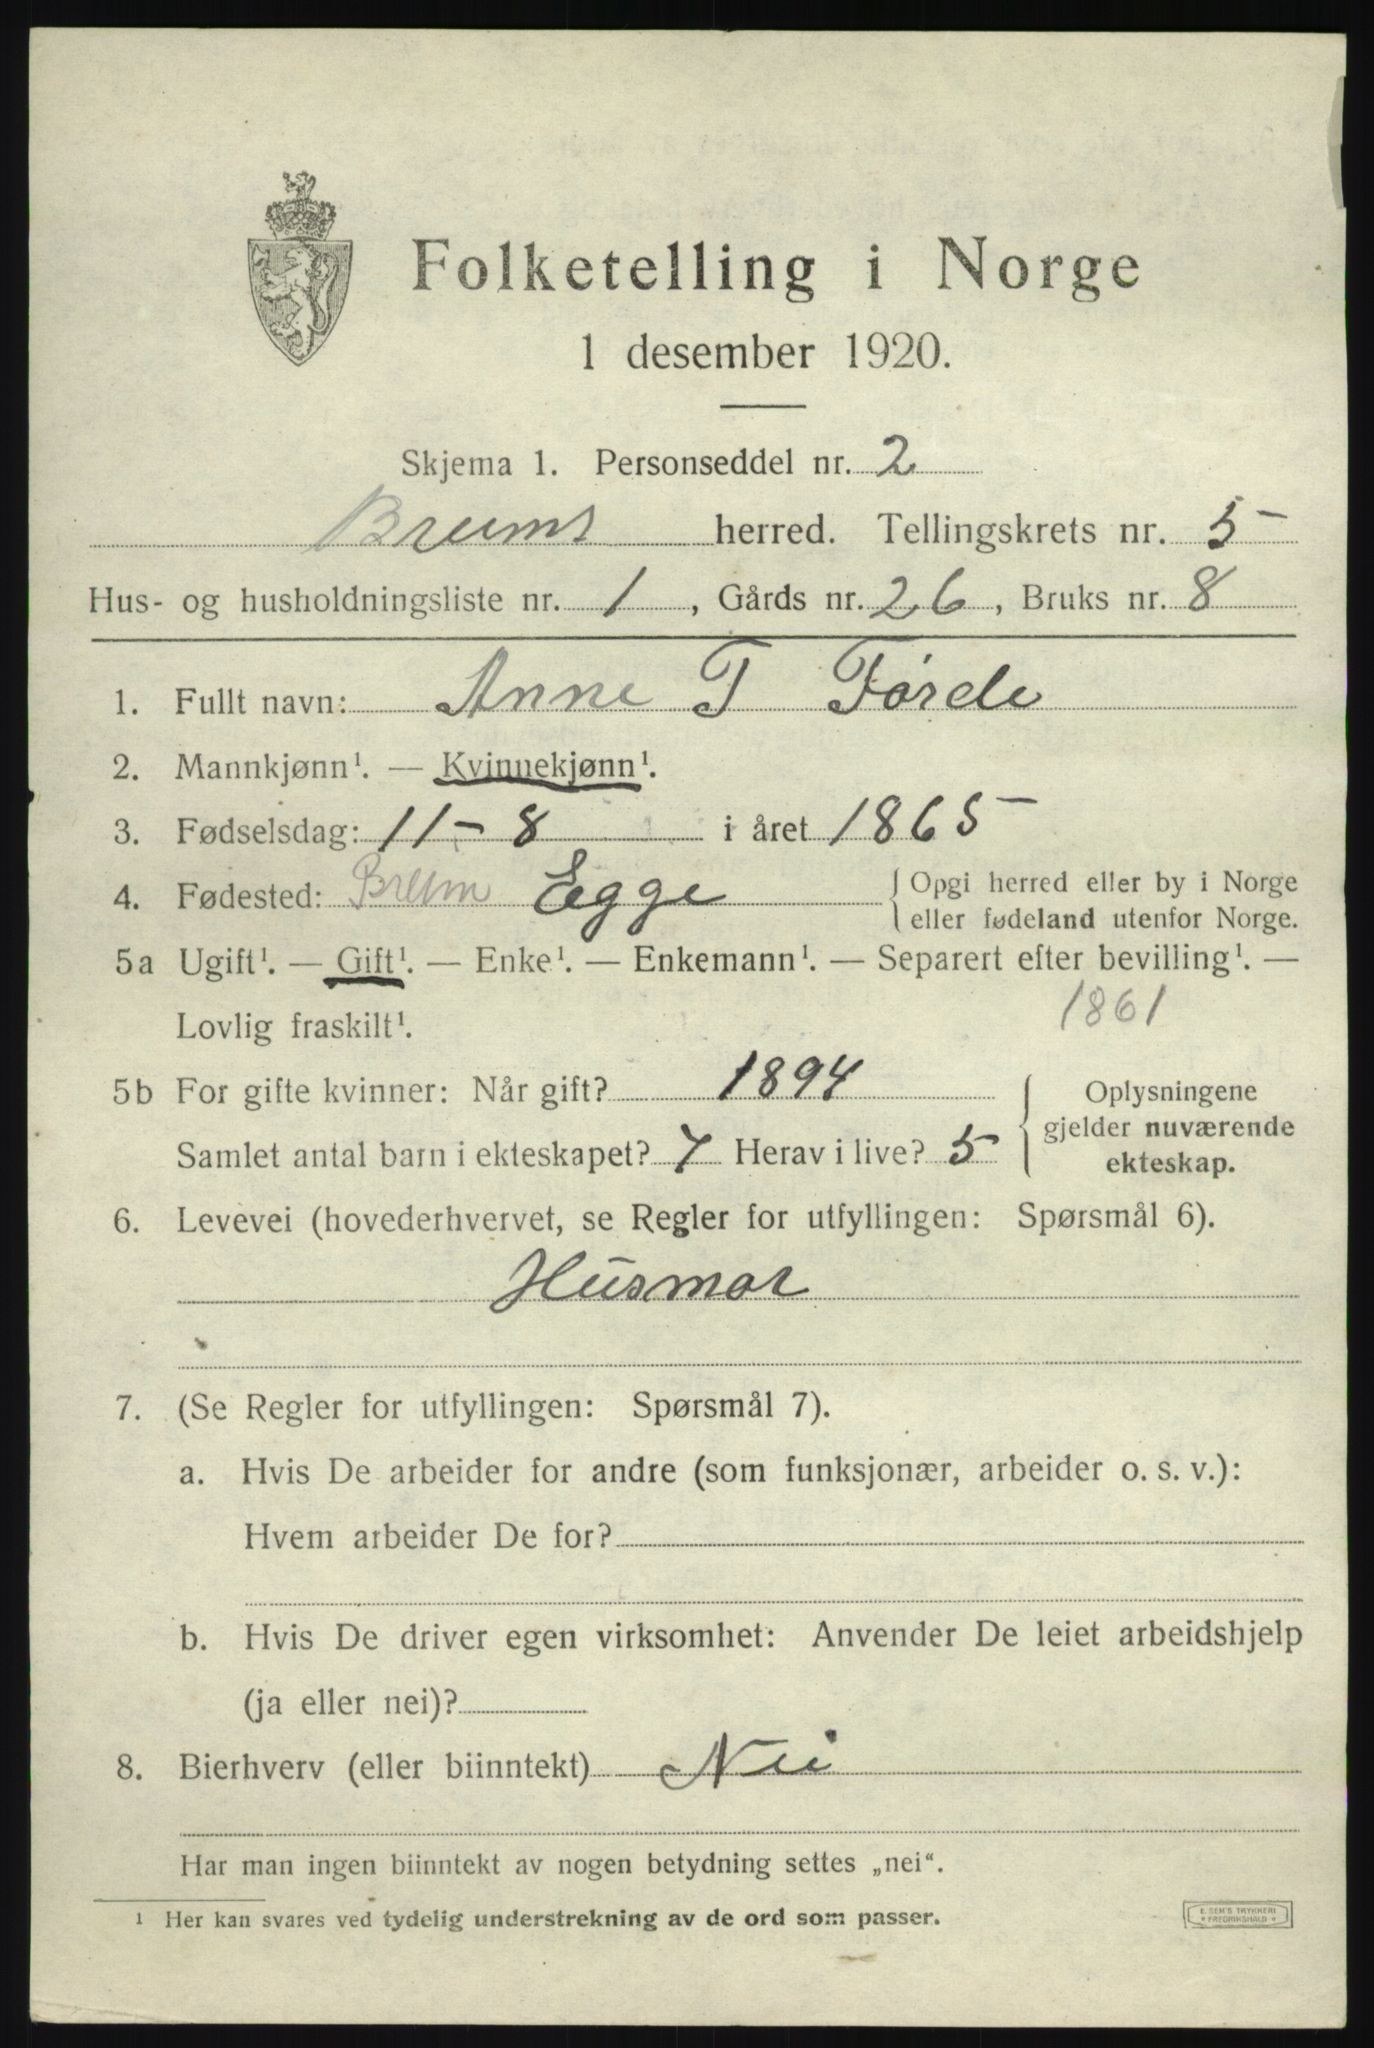 Folketelling i Norge
1 desember 1920.
Skjema 1. Personseddel nr. 2
Breims herred. Tellingskrets nr. 5
Hus- og husholdningsliste nr. 1, Gårds nr. 26, Bruks nr. 8
1. Fullt navn: Anne T Førde
2. Mannkjønn¹. — Kvinnekjønn¹.
3. Fødselsdag: 11-8 i året 1865
4. Fødested: Breim Egge { Opgi herred eller by i Norge
eller fødeland utenfor Norge.
5a Ugift¹. — Gift¹. — Enke¹. — Enkemann¹. — Separert efter bevilling¹. —
Lovlig fraskilt¹. 1861
5b For gifte kvinner: Når gift? 1894
Samlet antal barn i ekteskapet? 7 Herav i live? 5
Oplysningene
gjelder nuværende
ekteskap.
6. Levevei (hovederhvervet, se Regler for utfyllingen: Spørsmål 6).
Husmor
7. (Se Regler for utfyllingen: Spørsmål 7).
a. Hvis De arbeider for andre (som funksjonær, arbeider o. s. v.):
Hvem arbeider De for?
b. Hvis De driver egen virksomhet: Anvender De leiet arbeidshjelp
(ja eller nei)?
8. Bierhverv (eller biinntekt) Nei
Har man ingen biinntekt av nogen betydning settes „nei“.
¹ Her kan svares ved tydelig understrekning av de ord som passer.
E. SEM'S TRYKKERI
* FREDRIKSHALD *